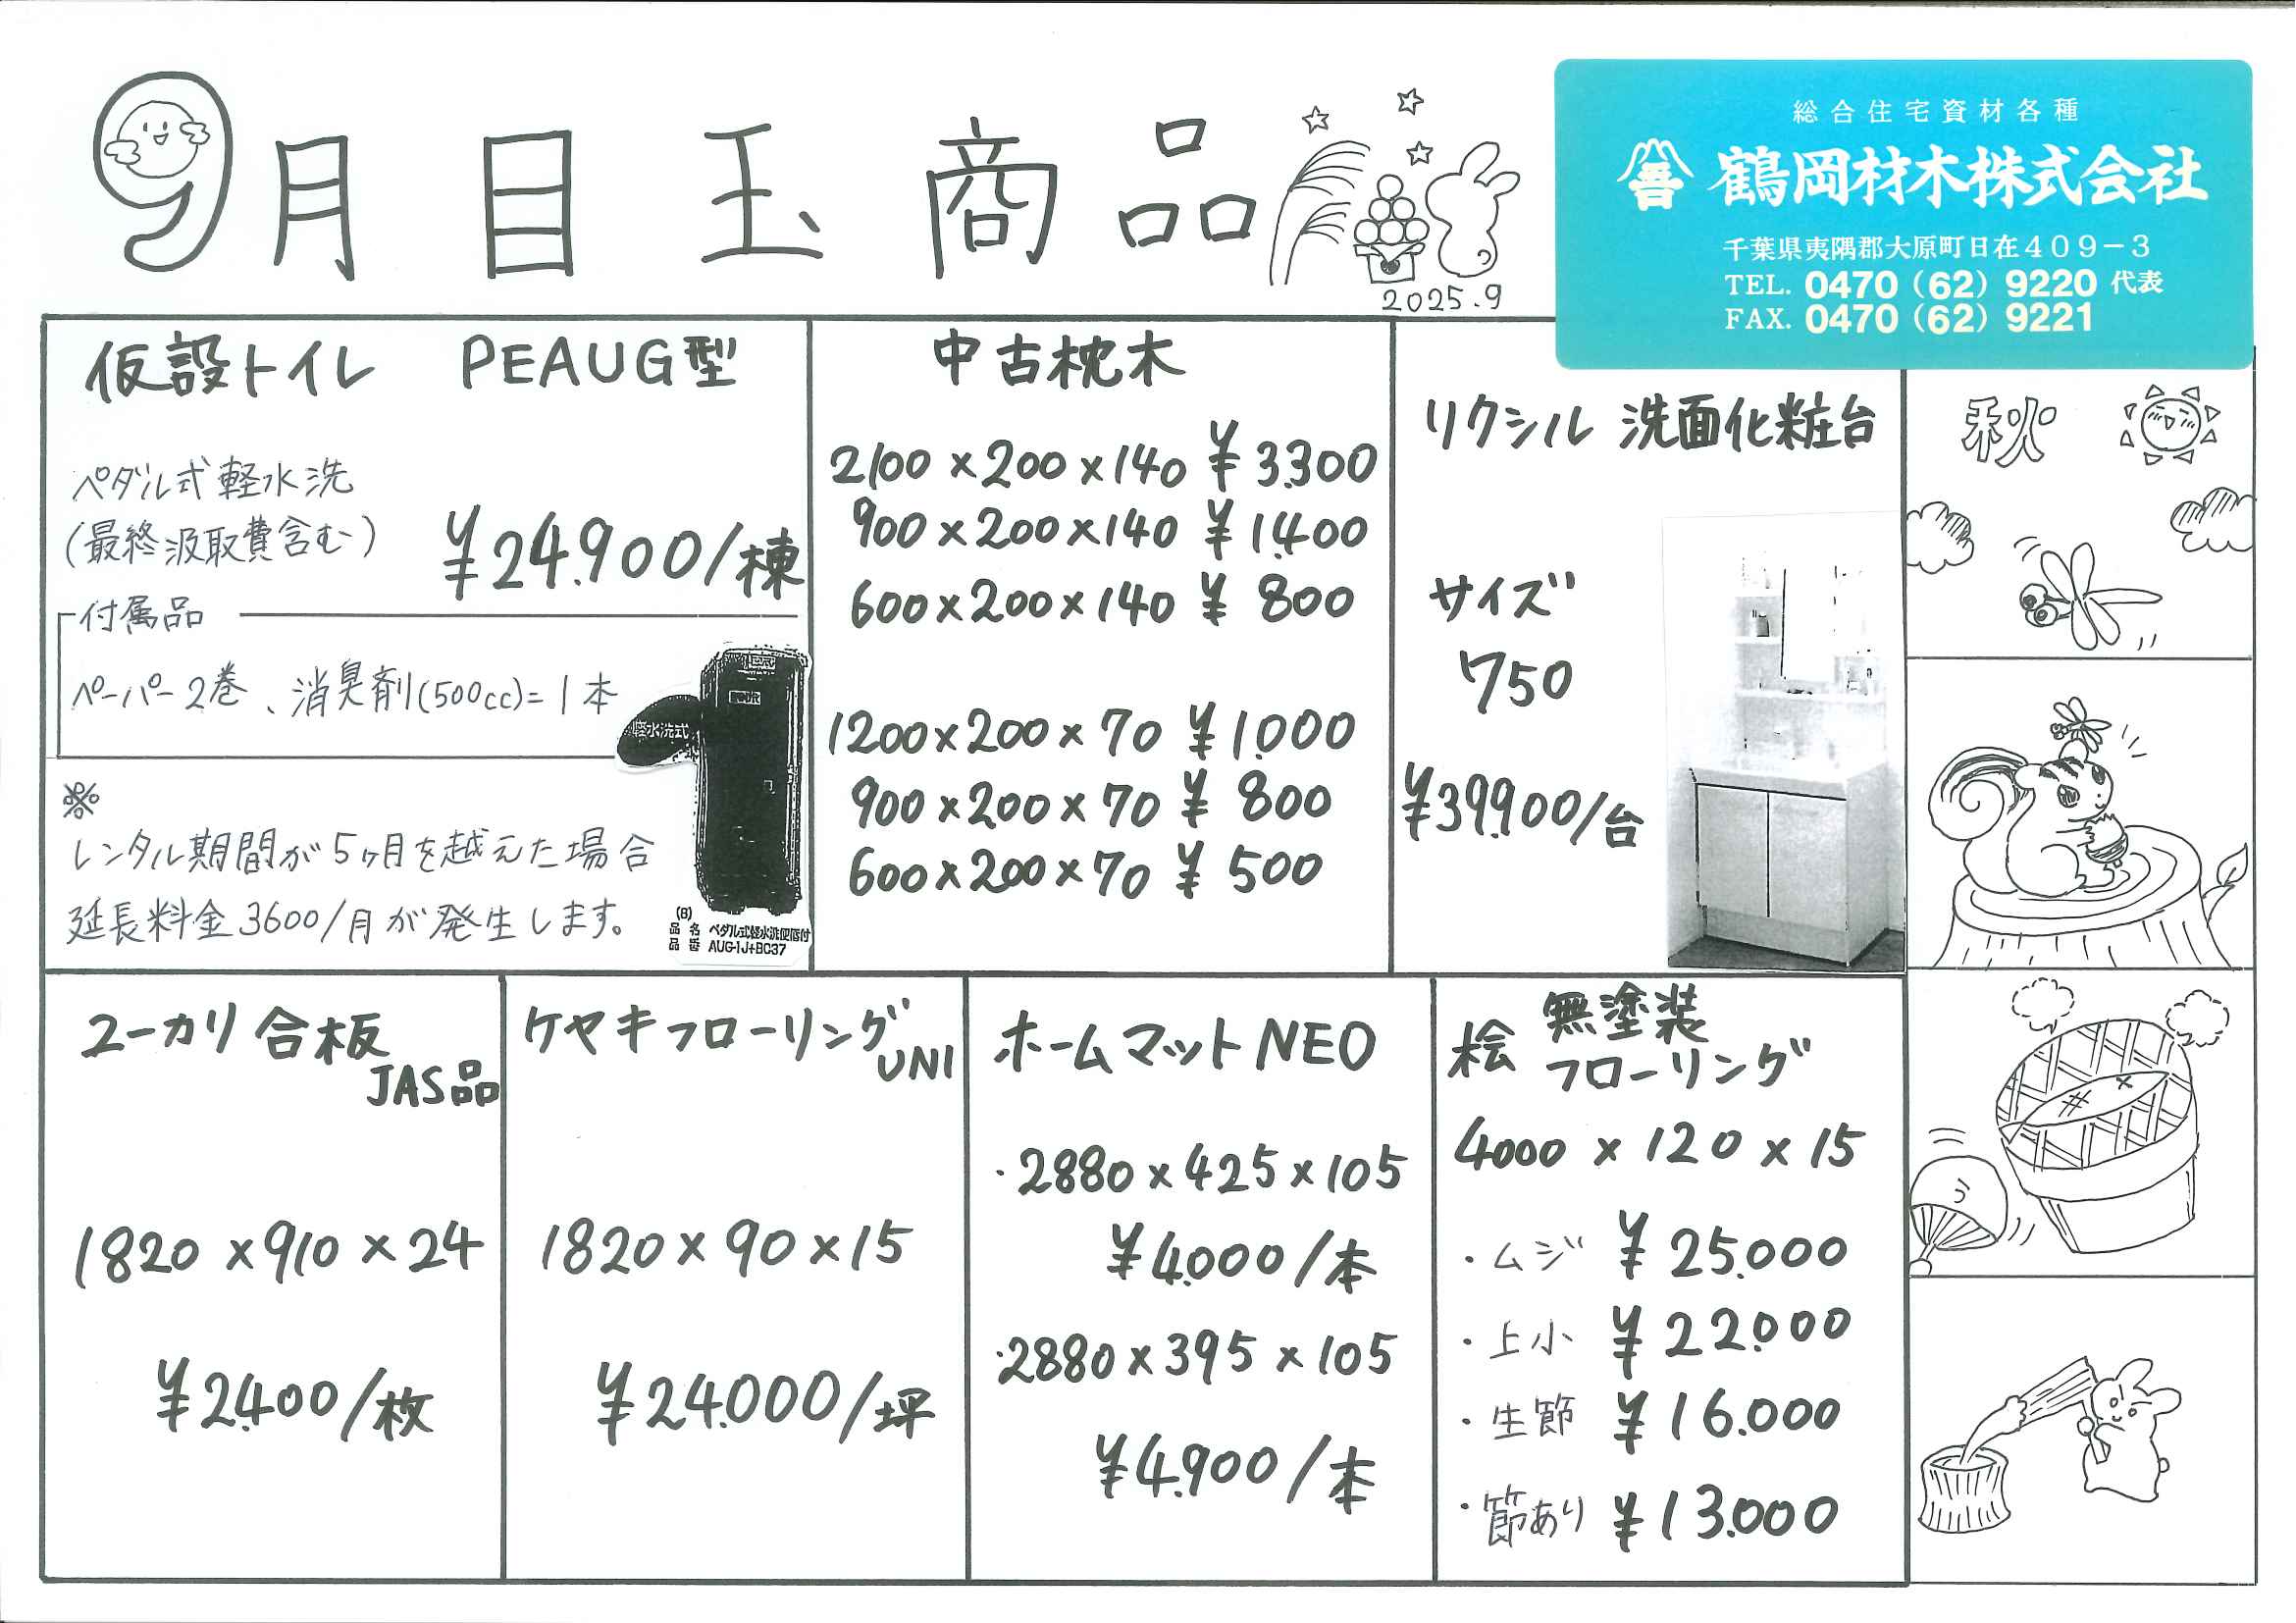 9月 目玉商品
2025.9
総合住宅資材各種
鶴岡材木株式会社
千葉県夷隅郡大原町日在409-3
TEL. 0470(62)9220 代表
FAX. 0470(62)9221
仮設トイレ PEAUG型
ペダル式軽水洗
(最終汲取費含む)
¥24.900/棟
付属品
ペーパー2巻、消臭剤(500cc)=1本
軽水洗式
※
レンタル期間が5ヶ月を越えた場合
延長料金3600/月が発生します。
(B)
品名 ペダル式軽水洗便槽付
品番 AUG-1J+BC37
中古枕木
2100×200×140 ¥3.300
900×200×140 ¥1.400
600×200×140 ¥800
1200×200×70 ¥1.000
900×200×70 ¥800
600×200×70 ¥500
リクシル 洗面化粧台
サイズ
750
¥39.900/台
秋
ユーカリ合板
JAS品
1820×910×24
¥2.400/枚
ケヤキフローリング
UNI
1820×90×15
¥24.000/坪
ホームマットNEO
・2880×425×105
¥4.000/本
・2880×395×105
¥4.900/本
桧 無塗装
フローリング
4000×120×15
・ムジ ¥25.000
・上小 ¥22.000
・生節 ¥16.000
・節あり ¥13.000